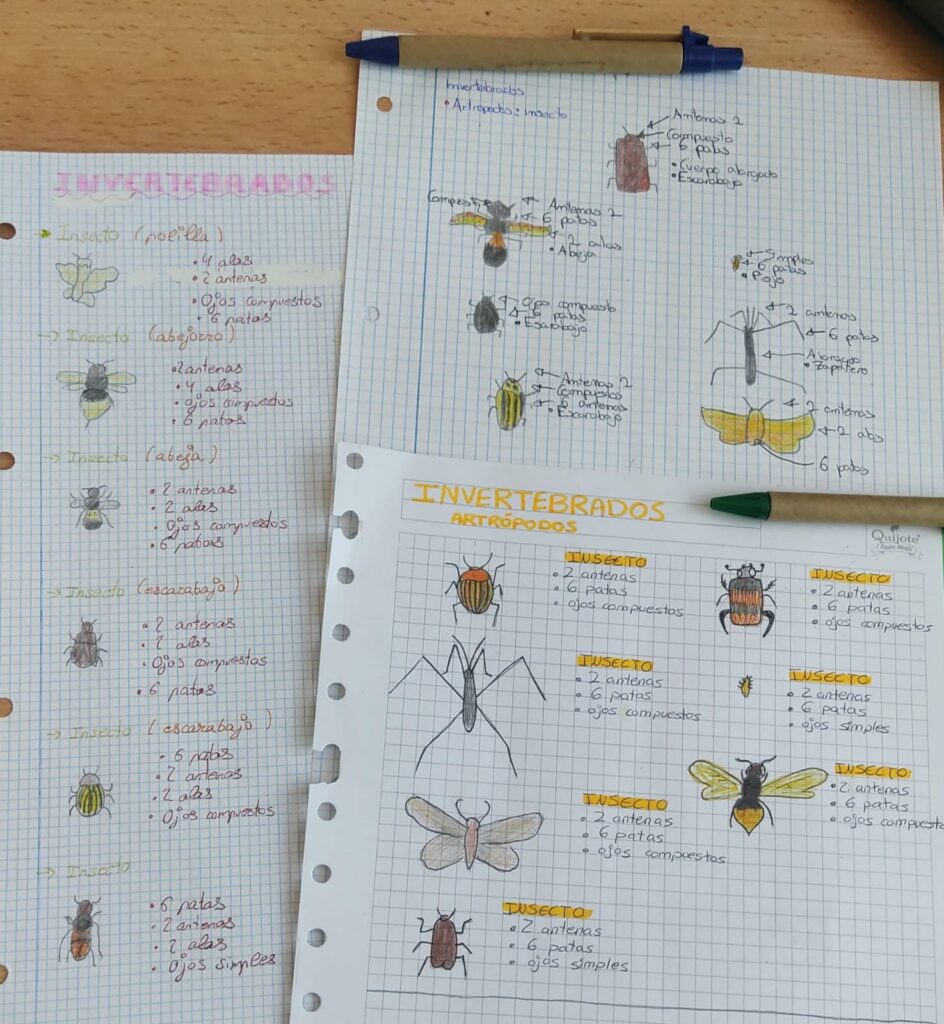 INVERTEBRADOS
Insecto (polilla)
• 4 alas
• 2 antenas
• Ojos compuestos
• 6 patas
Insecto (abejorro)
• 2 antenas
• 4 alas
• Ojos compuestos
• 6 patas
Insecto (abeja)
• 2 antenas
• 2 alas
• Ojos compuestos
• 6 patas
Insecto (escarabajo)
• 2 antenas
• 2 alas
• Ojos compuestos
• 6 patas
Insecto (escarabajo)
• 6 patas
• 2 antenas
• 2 alas
• Ojos compuestos
Insecto
• 6 patas
• 2 antenas
• 2 alas
• Ojos simples
Invertebrados
• Artropodos: insecto
Antenas 2
Compuesto
6 patas
• Cuerpo alargado
• Escarabajo
Antenas 2
6 patas
2 alas
• Abeja
Simples
6 patas
• Piojo
Ojo compuesto
6 patas
• Escarabajo
2 antenas
6 patas
• Zapatero
Antenas 2
Compuestos
6 antenas
• Escarabajo
2 antenas
6 patas
INVERTEBRADOS
ARTRÓPODOS
Quijote
INSECTO
• 2 antenas
• 6 patas
• ojos compuestos
INSECTO
• 2 antenas
• 6 patas
• ojos compuestos
INSECTO
• 2 antenas
• 6 patas
• ojos compuestos
INSECTO
• 2 antenas
• 6 patas
• ojos simples
INSECTO
• 2 antenas
• 6 patas
• ojos compuesto
INSECTO
• 2 antenas
• 6 patas
• ojos compuestos
INSECTO
• 2 antenas
• 6 patas
• ojos simples